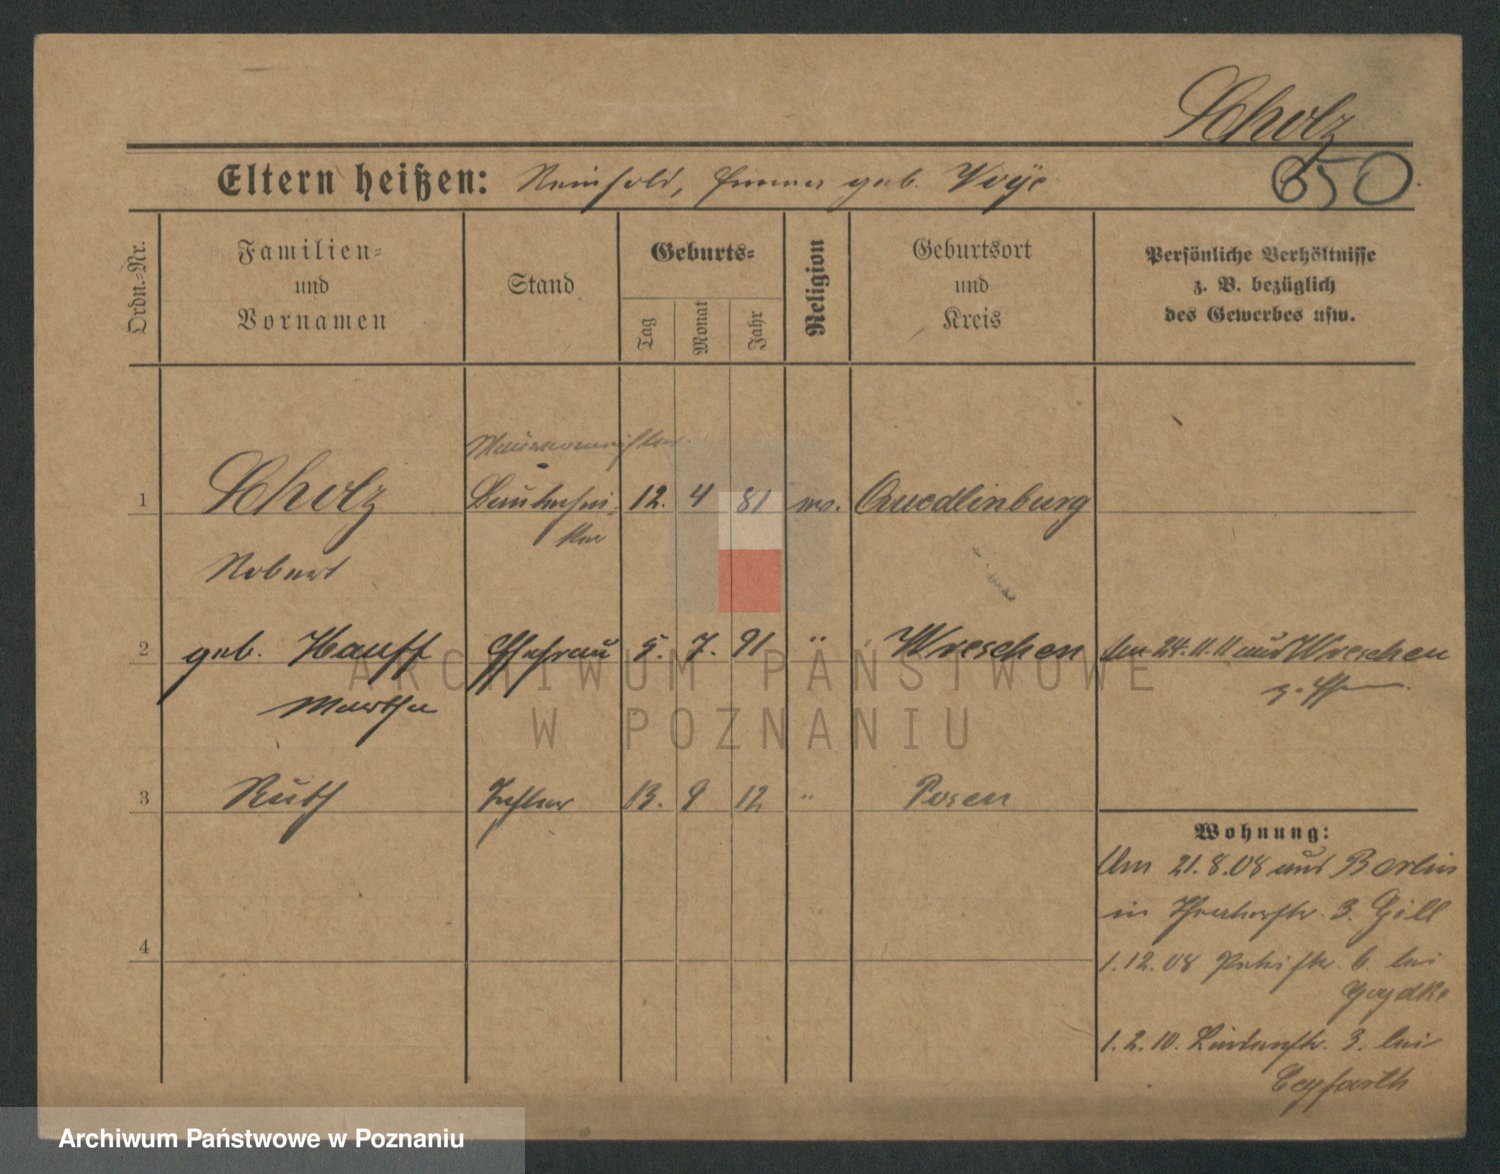 Scholz
650
Eltern heißen: Reinhold, Emma geb. Voye
Ordn.-Nr.
Familien-
und
Vornamen
Stand
Geburts-
Tag
Monat
Jahr
Religion
Geburtsort
und
Kreis
Persönliche Verhältnisse
z. B. bezüglich
des Gewerbes usw.
Maurermeister
1 Scholz 12. 4 81 ev. Quedlinburg
Robert
2 geb. Hauff Ehefrau 5. 7. 91 " Wreschen Am 24.11.11 aus Wreschen
Martha z. Ehem.
3 Ruth Tochter 13. 9 12 " Posen
Wohnung:
Am 21.8.08 aus Berlin
in Theaterstr. 3. Gell
4
1.12.08 Petristr. 6. bei
1.2.10. Lindenstr. 3. bei
Seyfarth
ARCHIWUM PAŃSTWOWE
W POZNANIU
Archiwum Państwowe w Poznaniu